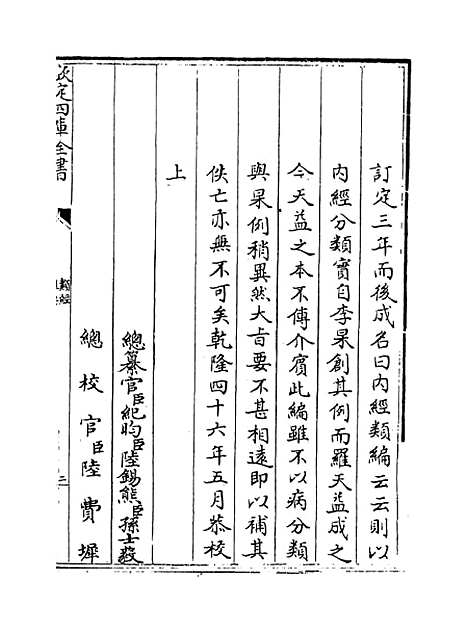 訂定三年而後成名曰内經類編云云則以
内經分類實自李杲創其例而羅天益成之
今天益之本不傳介賓此編雖不以病分類
與杲例稍異然大㫖要不甚相遠即以補其
佚亡亦無不可矣乾隆四十六年五月恭校
上
總纂官臣紀昀臣陸錫熊臣孫士毅
總校官臣陸費墀
欽定四庫全書
類經
三